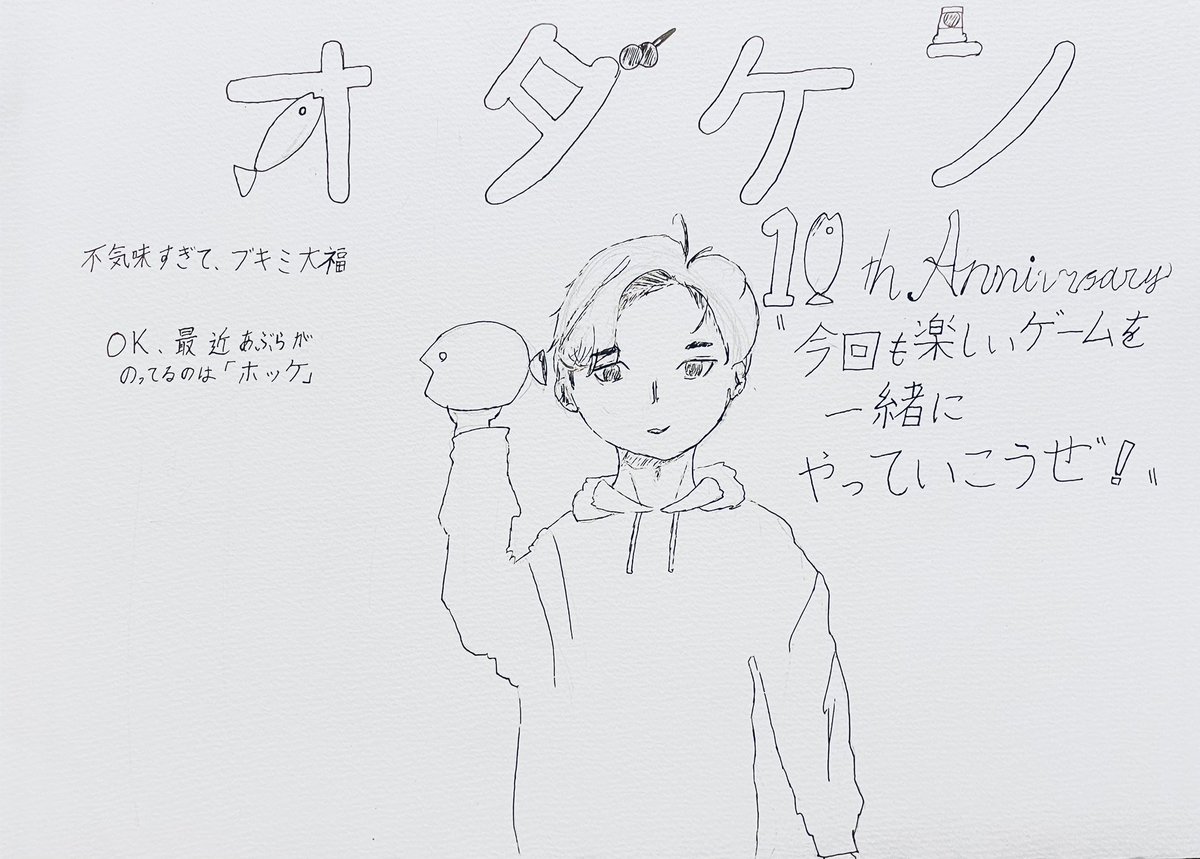 オダケン
10th Anniversary
不気味すぎて、ブキミ大福
OK、最近あぶらが
のってるのは「ホッケ」
"今回も楽しいゲームを
一緒に
やっていこうぜ!"